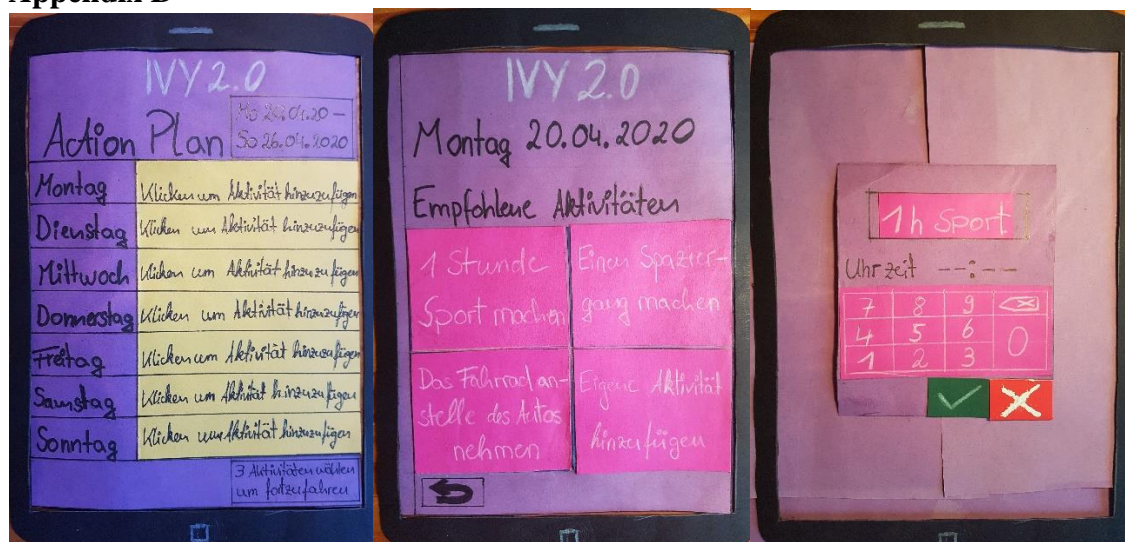 Appendix B
IVY 2.0
Action Plan
Mo 20.04.20 –
So 26.04.2020
Montag Klicken um Aktivität hinzuzufügen
Dienstag Klicken um Aktivität hinzuzufügen
Mittwoch Klicken um Aktivität hinzuzufügen
Donnerstag Klicken um Aktivität hinzuzufügen
Freitag Klicken um Aktivität hinzuzufügen
Samstag Klicken um Aktivität hinzuzufügen
Sonntag Klicken um Aktivität hinzuzufügen
3 Aktivitäten wählen
um fortzufahren
IVY 2.0
Montag 20.04.2020
Empfohlene Aktivitäten
1 Stunde
Sport machen
Einen Spazier-
gang machen
Das Fahrrad an-
stelle des Autos
nehmen
Eigene Aktivität
hinzufügen
1h Sport
Uhrzeit --:--
7 8 9
4 5 6 0
1 2 3